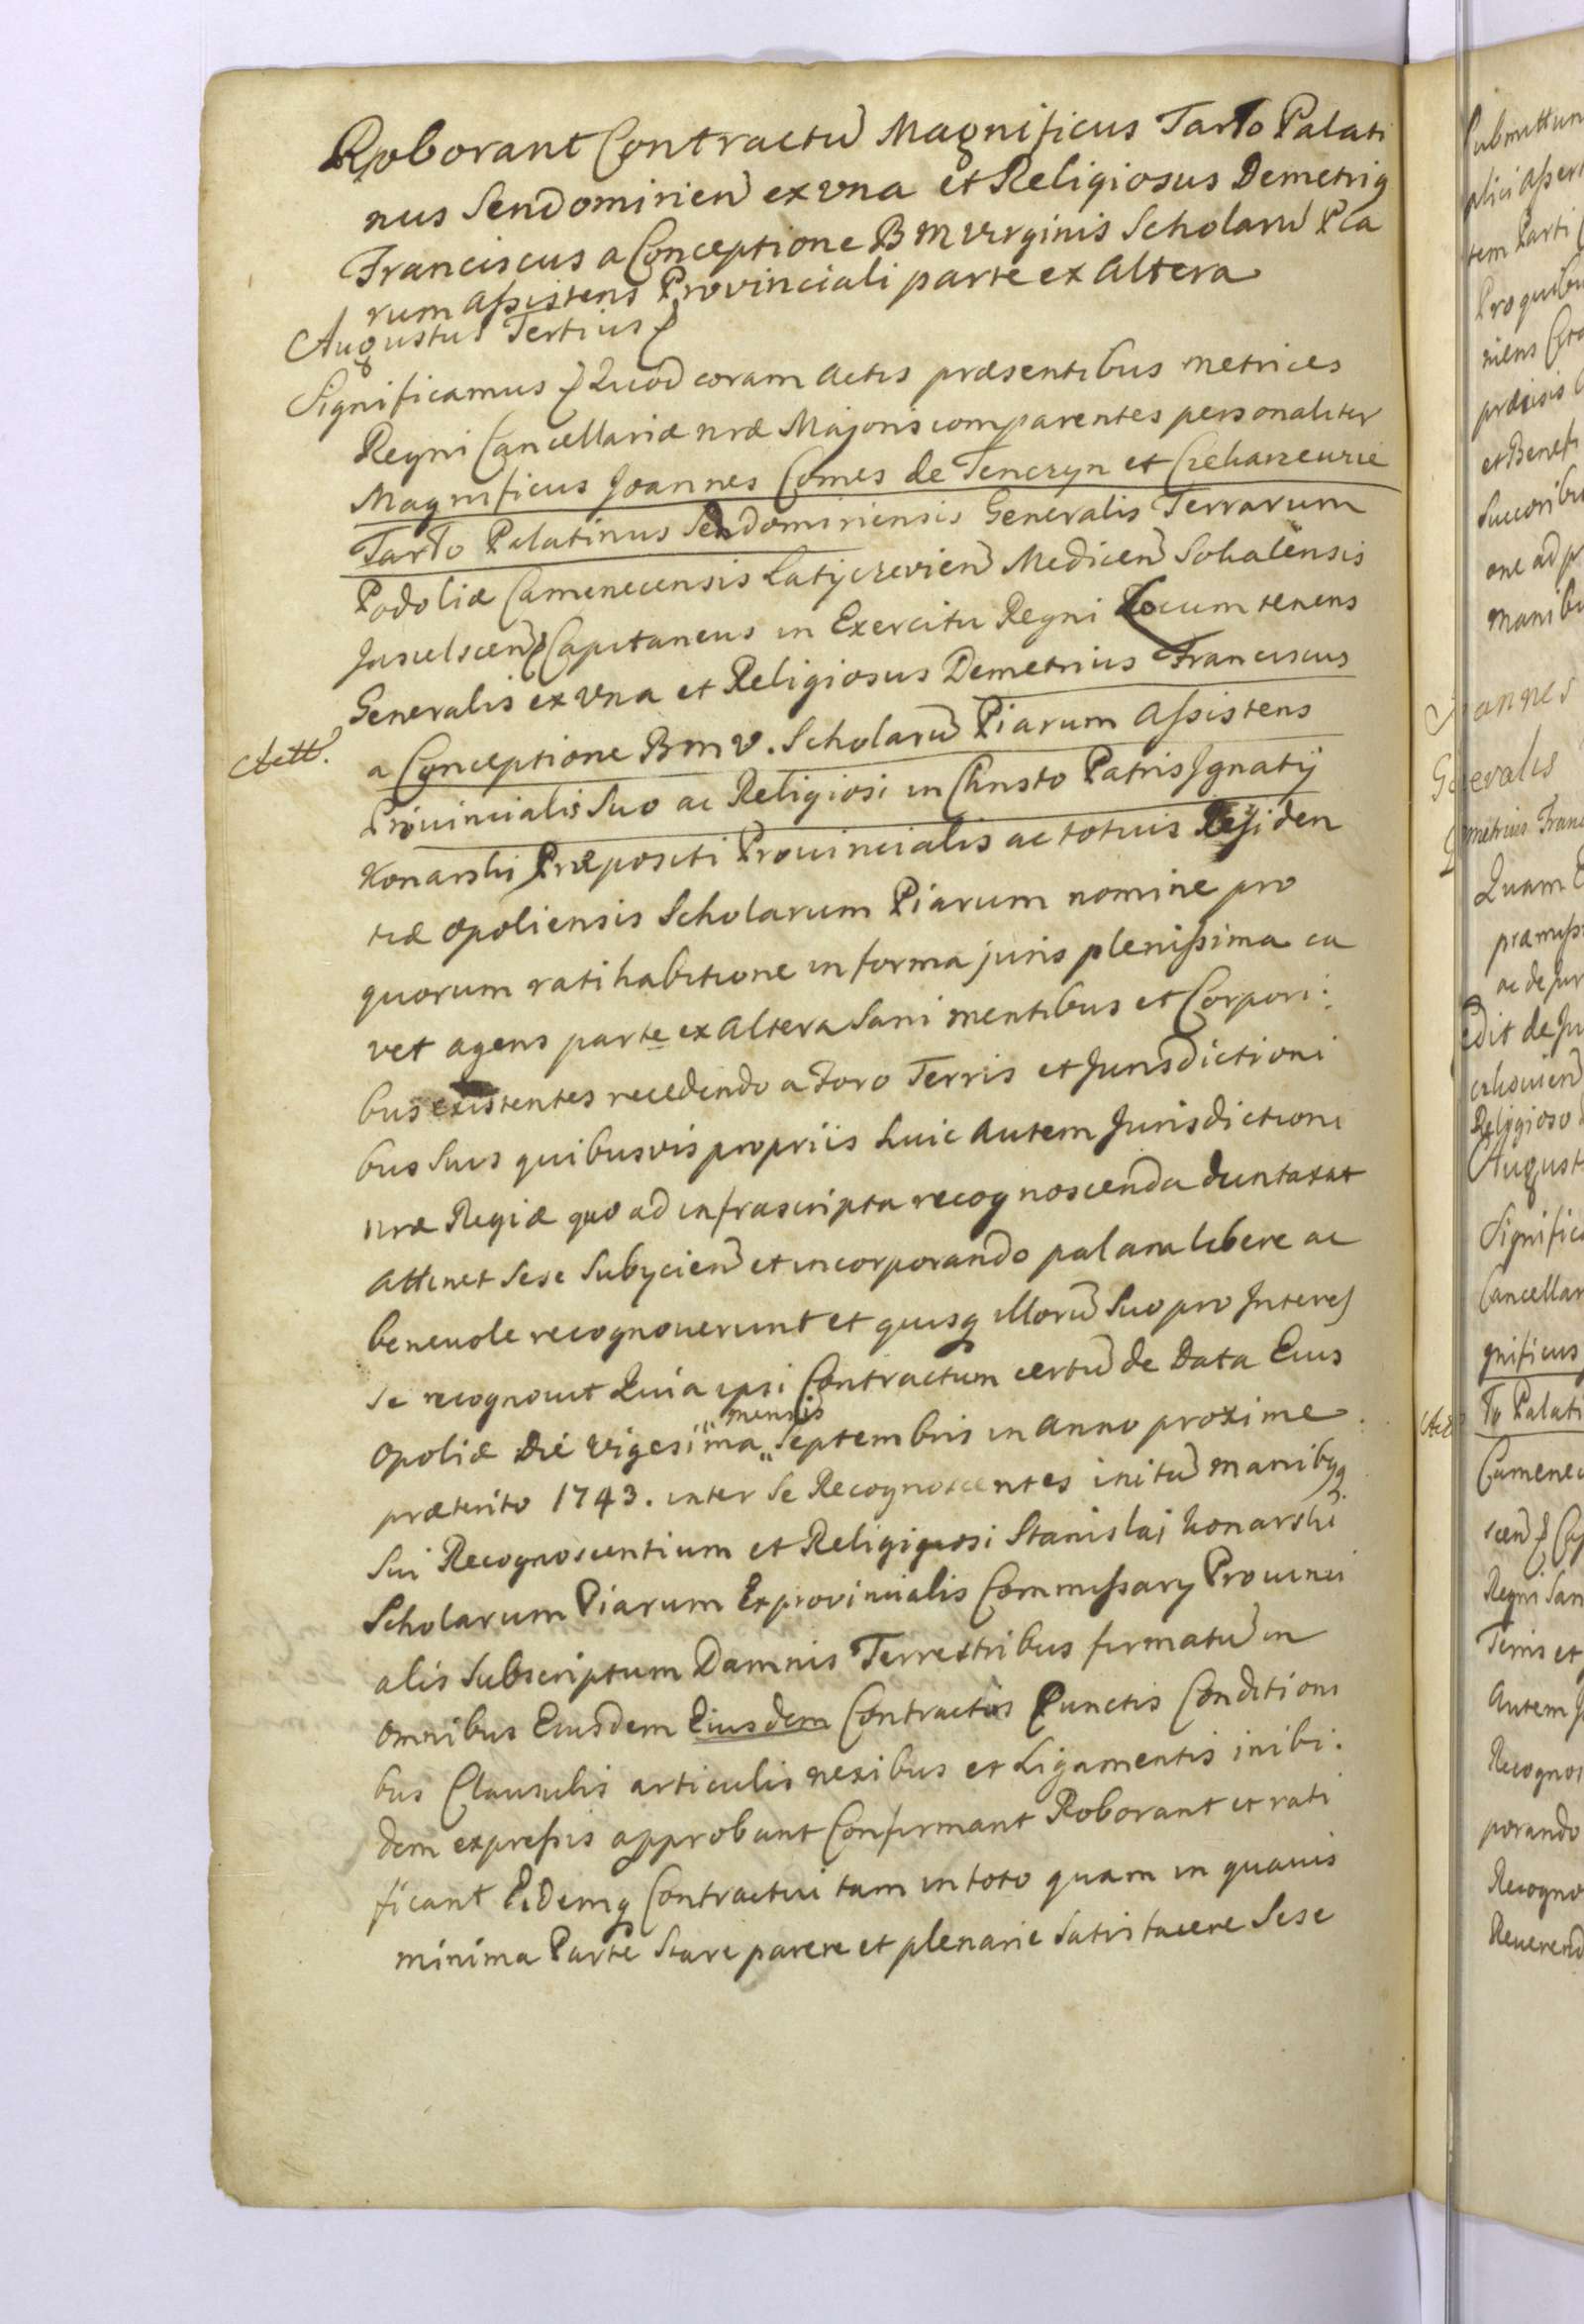 Roborant Contractu Magnificus Tarło Palati
nus Sendomirien ex vna et Religiosus Demetrig
Franciscus a Conceptione B M Virginis Scholaru Pia
rum Assistens Provinciali parte ex Altera
Augustus Tertius
Significamus Quod coram Actis præsentibus metrices
Regni Cancellariæ nræ Majoris comparentes personaliter
Magnificus Joannes Comes de Tenczyn et Czekarzewic
Tarło Palatinus Sendomiriensis Generalis Terrarum
Podoliæ Camenecensis Latyczevien Medicen Sokalensis
Jasielscen Capitaneus in Exercitu Regni Locum tenens
Generalis ex vna et Religiosus Demetrius Franciscus
a Conceptione B m v. Scholaru Piarum Assistens
Provincialis Suo ac Religiosi in Christo Patris Jgnatij
Konarski Præpositi Provincialis ac totius Residen
tiæ Opoliensis Scholarum Piarum nomine pro
quorum ratihabitione in forma juris plenissima ca
vet agens parte ex Altera Sani mentibus et Corpori:
bus existentes recedendo a Foro Terris et Jurisdictioni
bus Suis quibusvis propriis huic Autem Jurisdictioni
nræ Regiæ quo ad infrascripta recognoscenda duntaxat
Attinet Sese Subyicien et incorporando palam libere ac
benevole recognoverunt et quisq illoru Suo pro Interes
se recognovit Quia ipsi Contractum certu de Data Eius
Opoliæ Die Vigesima mensis Septembris in Anno proxime
præterito 1743. inter Se Recognoscentes initu manibusq
Sui Recognoscentium et Religiosi Stanislai Konarski
Scholarum Piarum Exprovincialis Commissary Provinci
alis Subscriptum Damnis Terrestribus firmatu in
Omnibus Eiusdem Eiusdem Contractus Punctis Conditioni
bus Clausulis articulis nexibus et Ligamentis inibi:
dem expressis approbant Confirmant Roborant et rati
ficant Eidemq Contractui tam in toto quam in quavis
minima Parte Stare parere et plenarie Satisfacere Sese